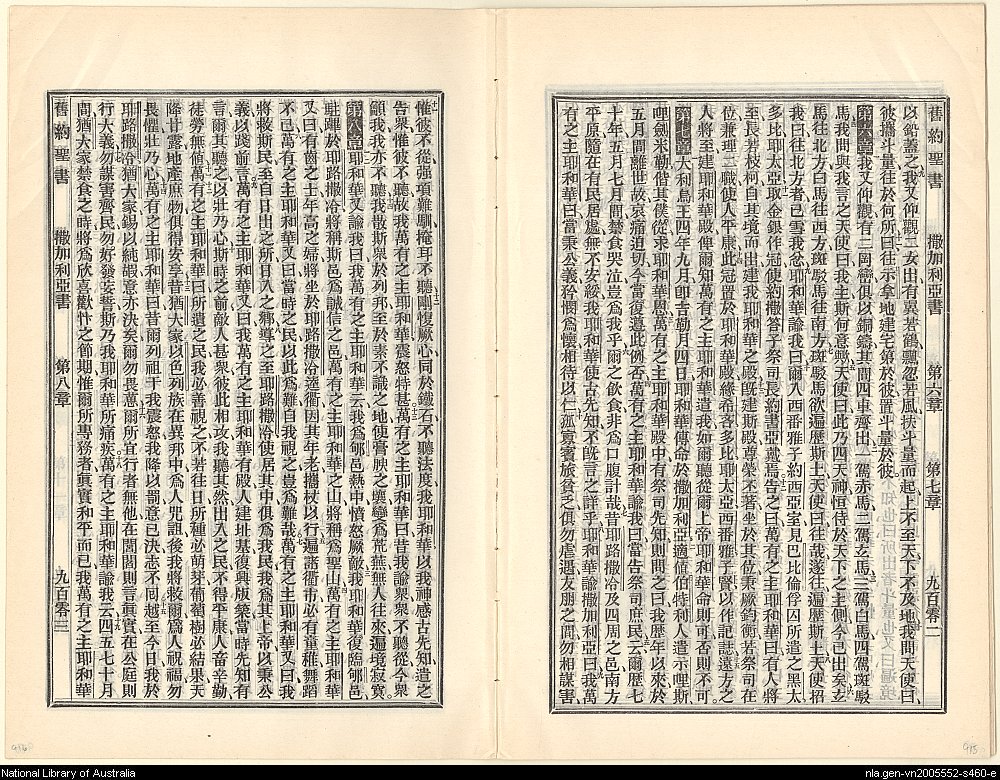 舊約聖書 撒加利亞書 第六章 第七章 九百零二
以鉛蓋之我又仰觀二女出有翼若鶴鸛忽若風扶斗量而起上不至天下不及地我問天使曰
彼攜斗量往於何所曰往示拿地建宅第於彼置斗量於彼
第六章 我又仰觀有二岡巒俱以銅鑄其間四車齊出一駕赤馬二駕玄馬三駕白馬四駕斑駁
馬我問與我言之天使曰我主斯何意歟天使曰此乃四天神恒侍於天下之主側今已出矣玄
馬往北方白馬往西方斑駁馬往南方斑駁馬欲遍歷斯土天使曰往哉遂往遍歷斯土天使招
我曰往北方者已雪我忿耶和華諭我曰爾入西番雅子約西亞室見巴比倫俘囚所遣之黑太
多比耶太亞取金銀作冠使約撒答子祭司長約書亞戴焉告之曰萬有之主耶和華曰有人將
至長若枝柯自其境而出建我耶和華之殿既建斯殿尊榮丕著坐於其位秉厥鈞衡若祭司在
位兼理二職使人平康此冠置於耶和華殿緣希客多比耶太亞西番雅子賢以作記誌遠方之
人將至建耶和華殿俾爾知萬有之主耶和華遣我如爾聽從爾上帝耶和華命則可否則不可
第七章 大利烏王四年九月即吉勒月四日耶和華傳命於撒加利亞適値伯特利人遣示哩斯
哩劍米勒偕其僕從求耶和華恩萬有之主耶和華殿中有祭司先知則問之曰我歷年以來於
五月間離世故哀痛迫切今當復遵此例否萬有之主耶和華諭我曰當告祭司庶民云爾歷七
十年五月七月間禁食哭泣豈爲我乎爾之飲食非爲口腹計哉昔耶路撒冷及四周之邑南方
平原隨在有民居處無不安綏我耶和華使古先知不旣言之詳乎耶和華諭撒加利亞曰我萬
有之主耶和華曰當秉公義矜憫爲懷相待以仁孤寡賓旅貧乏俱勿虐遇友朋之間勿相謀害
惟彼不從強項難馴掩耳不聽剛愎厥心同於鐵石不聽法度我耶和華以我神感古先知遣之
告衆惟彼不聽故我萬有之主耶和華震怒特甚萬有之主耶和華曰昔我諭衆衆不聽從今衆
籲我我亦不聽我散斯衆於列邦至於素不識之地使膏腴之壤變爲荒蕪無人往來遍境寂寞
第八章 耶和華又諭我曰我萬有之主耶和華云我爲郇邑熱中憤怒厥敵我耶和華復臨郇邑
駐蹕於耶路撒冷將稱斯邑爲誠信之邑萬有之主耶和華之山將稱爲聖山萬有之主耶和華
又曰有齒之士年高之婦將坐於耶路撒冷逵衢因其年老攜杖以行遍諸衢巿必有童稚舞蹈
不已萬有之主耶和華又曰當時之民以此爲難自我視之豈爲難哉萬有之主耶和華又曰我
將救斯民至自日出之所日入之鄉導之至耶路撒冷使居其中俱爲我民我爲其上帝以秉公
義以踐前言萬有之主耶和華又曰我萬有之主耶和華有殿人建址基復興版築當時先知有
言爾其聽之以壯乃心斯時之前敵人甚衆彼此相攻我聽其然出入之民不得平康人畜辛勤
徒勞無値萬有之主耶和華曰所遺之民我必善視之不若往日所種必萌芽葡萄樹必結果天
降甘露地產庶物俱得安享昔猶大家以色列族在異邦中爲人咒詛後我將救爾爲人視福勿
畏懼壯乃心萬有之主耶和華曰昔爾列祖干我震怒我降以罰意已決志不回越至今日我於
耶路撒冷猶大家錫以純嘏意亦決矣爾勿畏意爾所宜行者無他在閭閻則言眞實在公庭則
行大義勿謀害齊民勿好發妄誓斯乃我耶和華所痛疾萬有之主耶和華諭我云四五七十月
間猶大家禁食之時將爲欣喜歡忭之節期惟爾所專務者眞實和平而已我萬有之主耶和華
舊約聖書 撒加利亞書 第八章 九百零三
National Library of Australia
nla.gen-vn2005552-s460-e